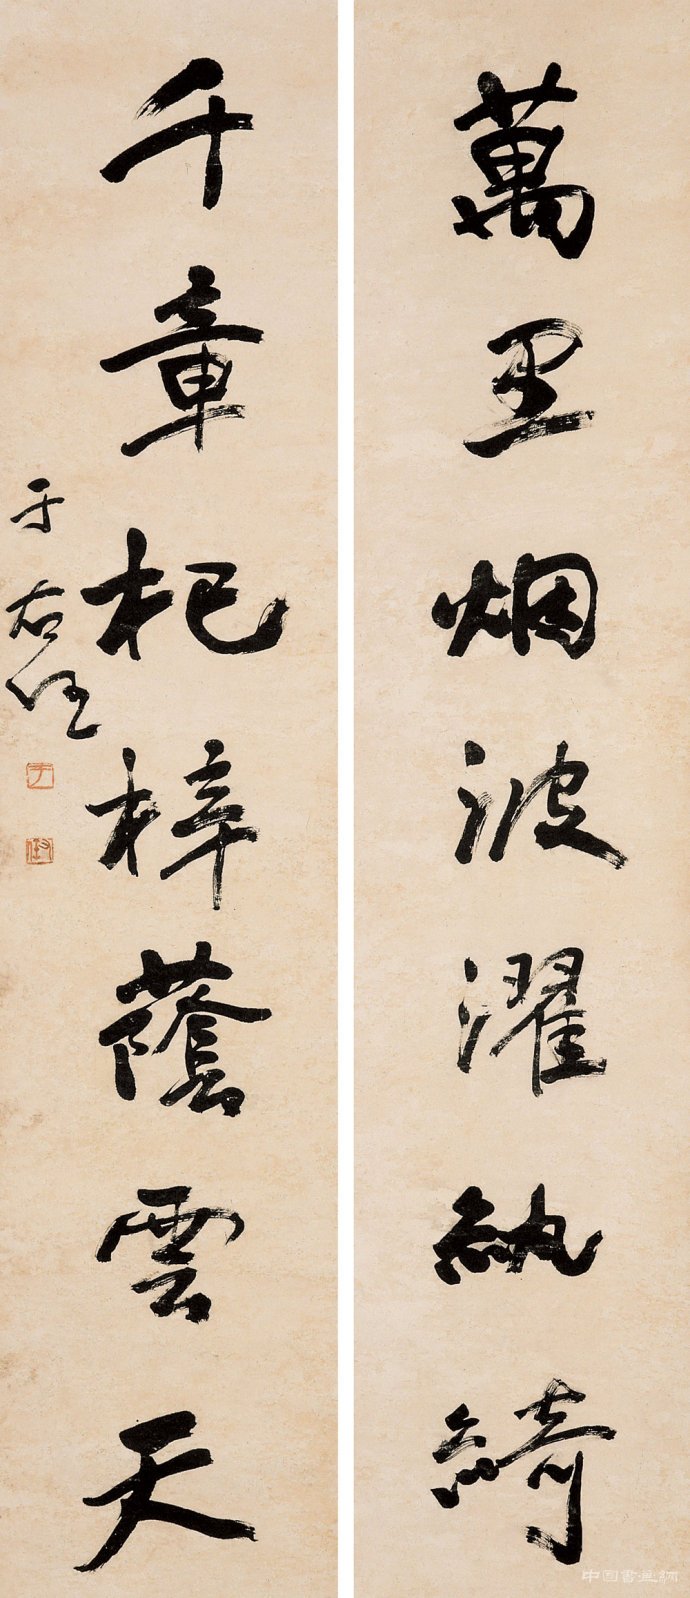 萬里烟波濯紈綺
千章杞梓蔭雲天
于右任
于
中国書画網